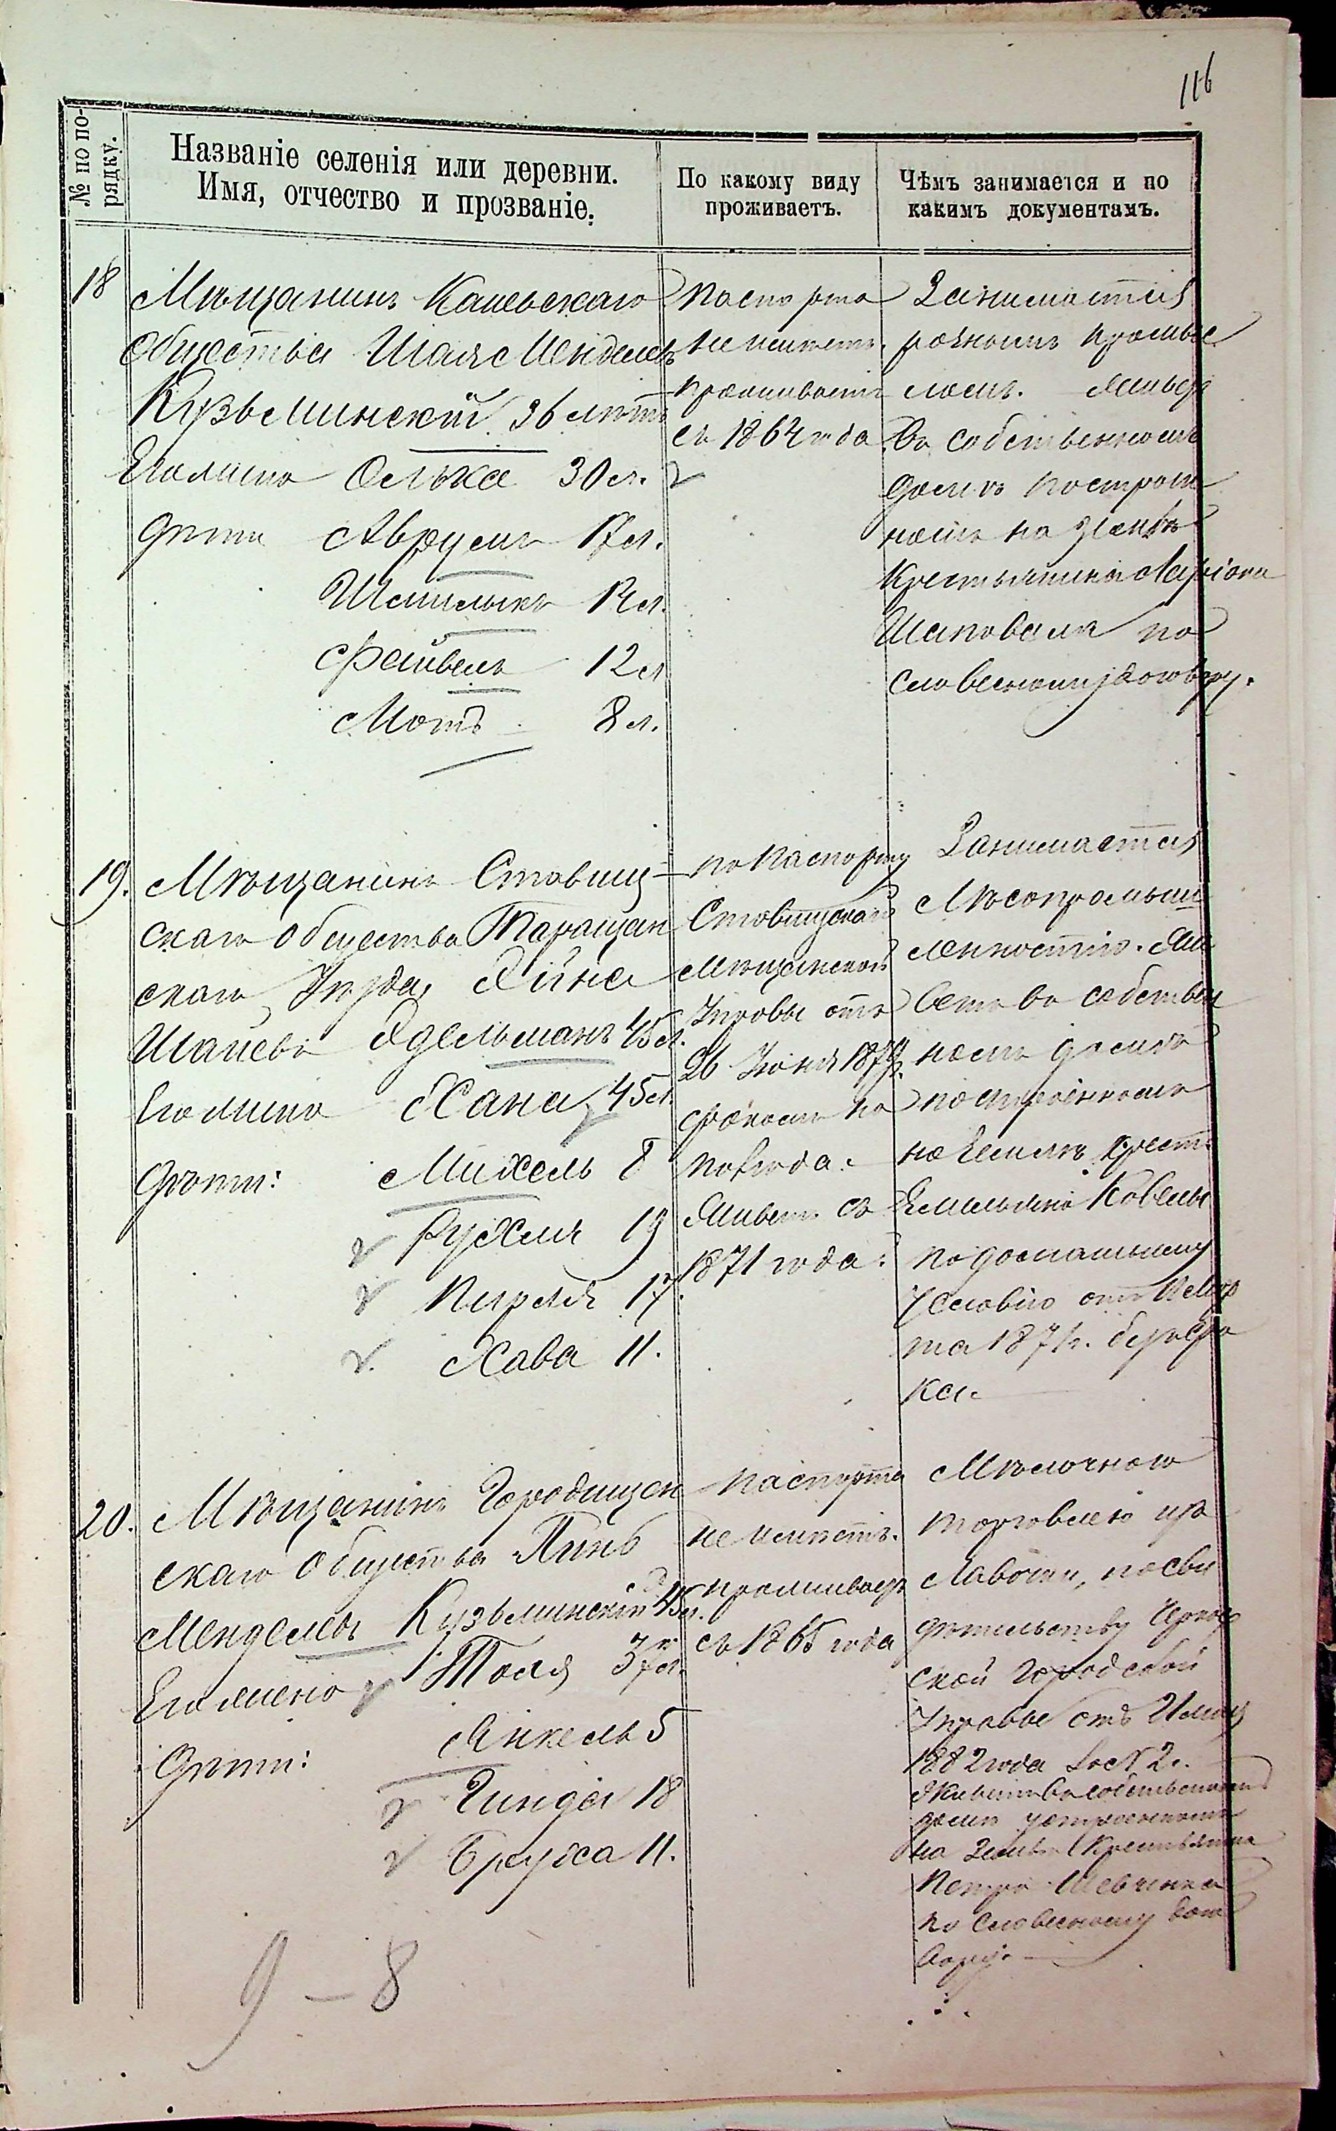 116
№ по по-
рядку.
Названіе селенія или деревни.
Имя, отчество и прозваніе.
По какому виду
проживаетъ.
Чѣмъ занимается и по
какимъ документамъ.
18
Мѣщанинъ Каневскаго
общества Шая Менделевъ
Кузьминскій 36 лѣтъ
Его жена Элька 30 л.
Дѣти Аврумъ 17 л.
Шмилыкъ 14 л.
Файвель 12 л
Мотъ 8 л.
Паспорта
не имѣетъ.
проживаетъ
съ 1864 года
Занимается
разнымъ промыс
ломъ. Живетъ
въ собственномъ
домѣ построен
номъ на землѣ
крестьянина Ларіона
Шаповала по
словесному договору.
19.
Мѣщанинъ Ставищ-
скаго общества Таращан
скаго уѣзда,
Шаиевъ Эдельманъ 45 л.
Его жена Хана 45 л.
Дѣти: Михель 8
Рухля 19
Перля 17.
Хава 11.
по паспорту
Ставищской
мѣщанской
управы отъ
26 Іюня
срокомъ на
полгода.
Живетъ съ
1871 года.
Занимается
мѣсопромыш
ленностію. Жи
ветъ въ собствен
номъ домѣ
построенномъ
на землѣ крест.
Емельяна Ковели
по домашнему
условію отъ
та 1871 г. безъ сро
ка.
20.
Мѣщанинъ Городищен
скаго общества Пинь
Менделевъ Кузьминскій 45 л.
Его жена Тося 37 л.
Дѣти: Янкель 5
Гинда 18
Бруха 11.
Паспорта
не имѣетъ.
проживаетъ
съ 1865 года
Мѣлочною
торговлею изъ
лавочки, по сви
дѣтельству Черкас
ской Городской
Управы отъ
1882 года за № 2.
Живетъ въ собственномъ
домѣ устроенномъ
на землѣ крестьянина
Петра Шевченка
по словесному дого
вору.
9 – 8